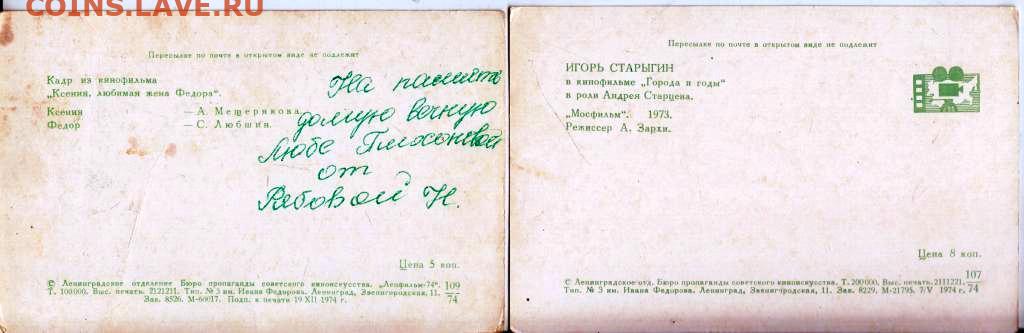 COINS.LAVE.RU
Пересылке по почте в открытом виде не подлежит
Кадр из кинофильма
„Ксения, любимая жена Федора“.
Ксения — А. Мещерякова
Федор — С. Любшин.
На память
долгую вечную
Любе
от
Рябовой Н.
Цена 5 коп.
© Ленинградское отделение Бюро пропаганды советского киноискусства. „Ленфильм-74“ 109
Т. 100000. Выс. печать. 2121211. Тип. № 3 им. Ивана Федорова. Ленинград, Звенигородская, 11. 74
Зак. 8526. М-60017. Подп. к печати 19 XII 1974 г.
Пересылке по почте в открытом виде не подлежит
ИГОРЬ СТАРЫГИН
в кинофильме „Города и годы“
в роли Андрея Старцева.
„Мосфильм“. 1973.
Режиссер А. Зархи.
Цена 8 коп.
107
© Ленинградское отд. Бюро пропаганды советского киноискусства. Т. 200000, Выс. печать. 2111221.
Тип. № 3 им. Ивана Федорова. Ленинград, Звенигородская, 11. Зак. 8229. М-21795. 7/V 1974 г. 74